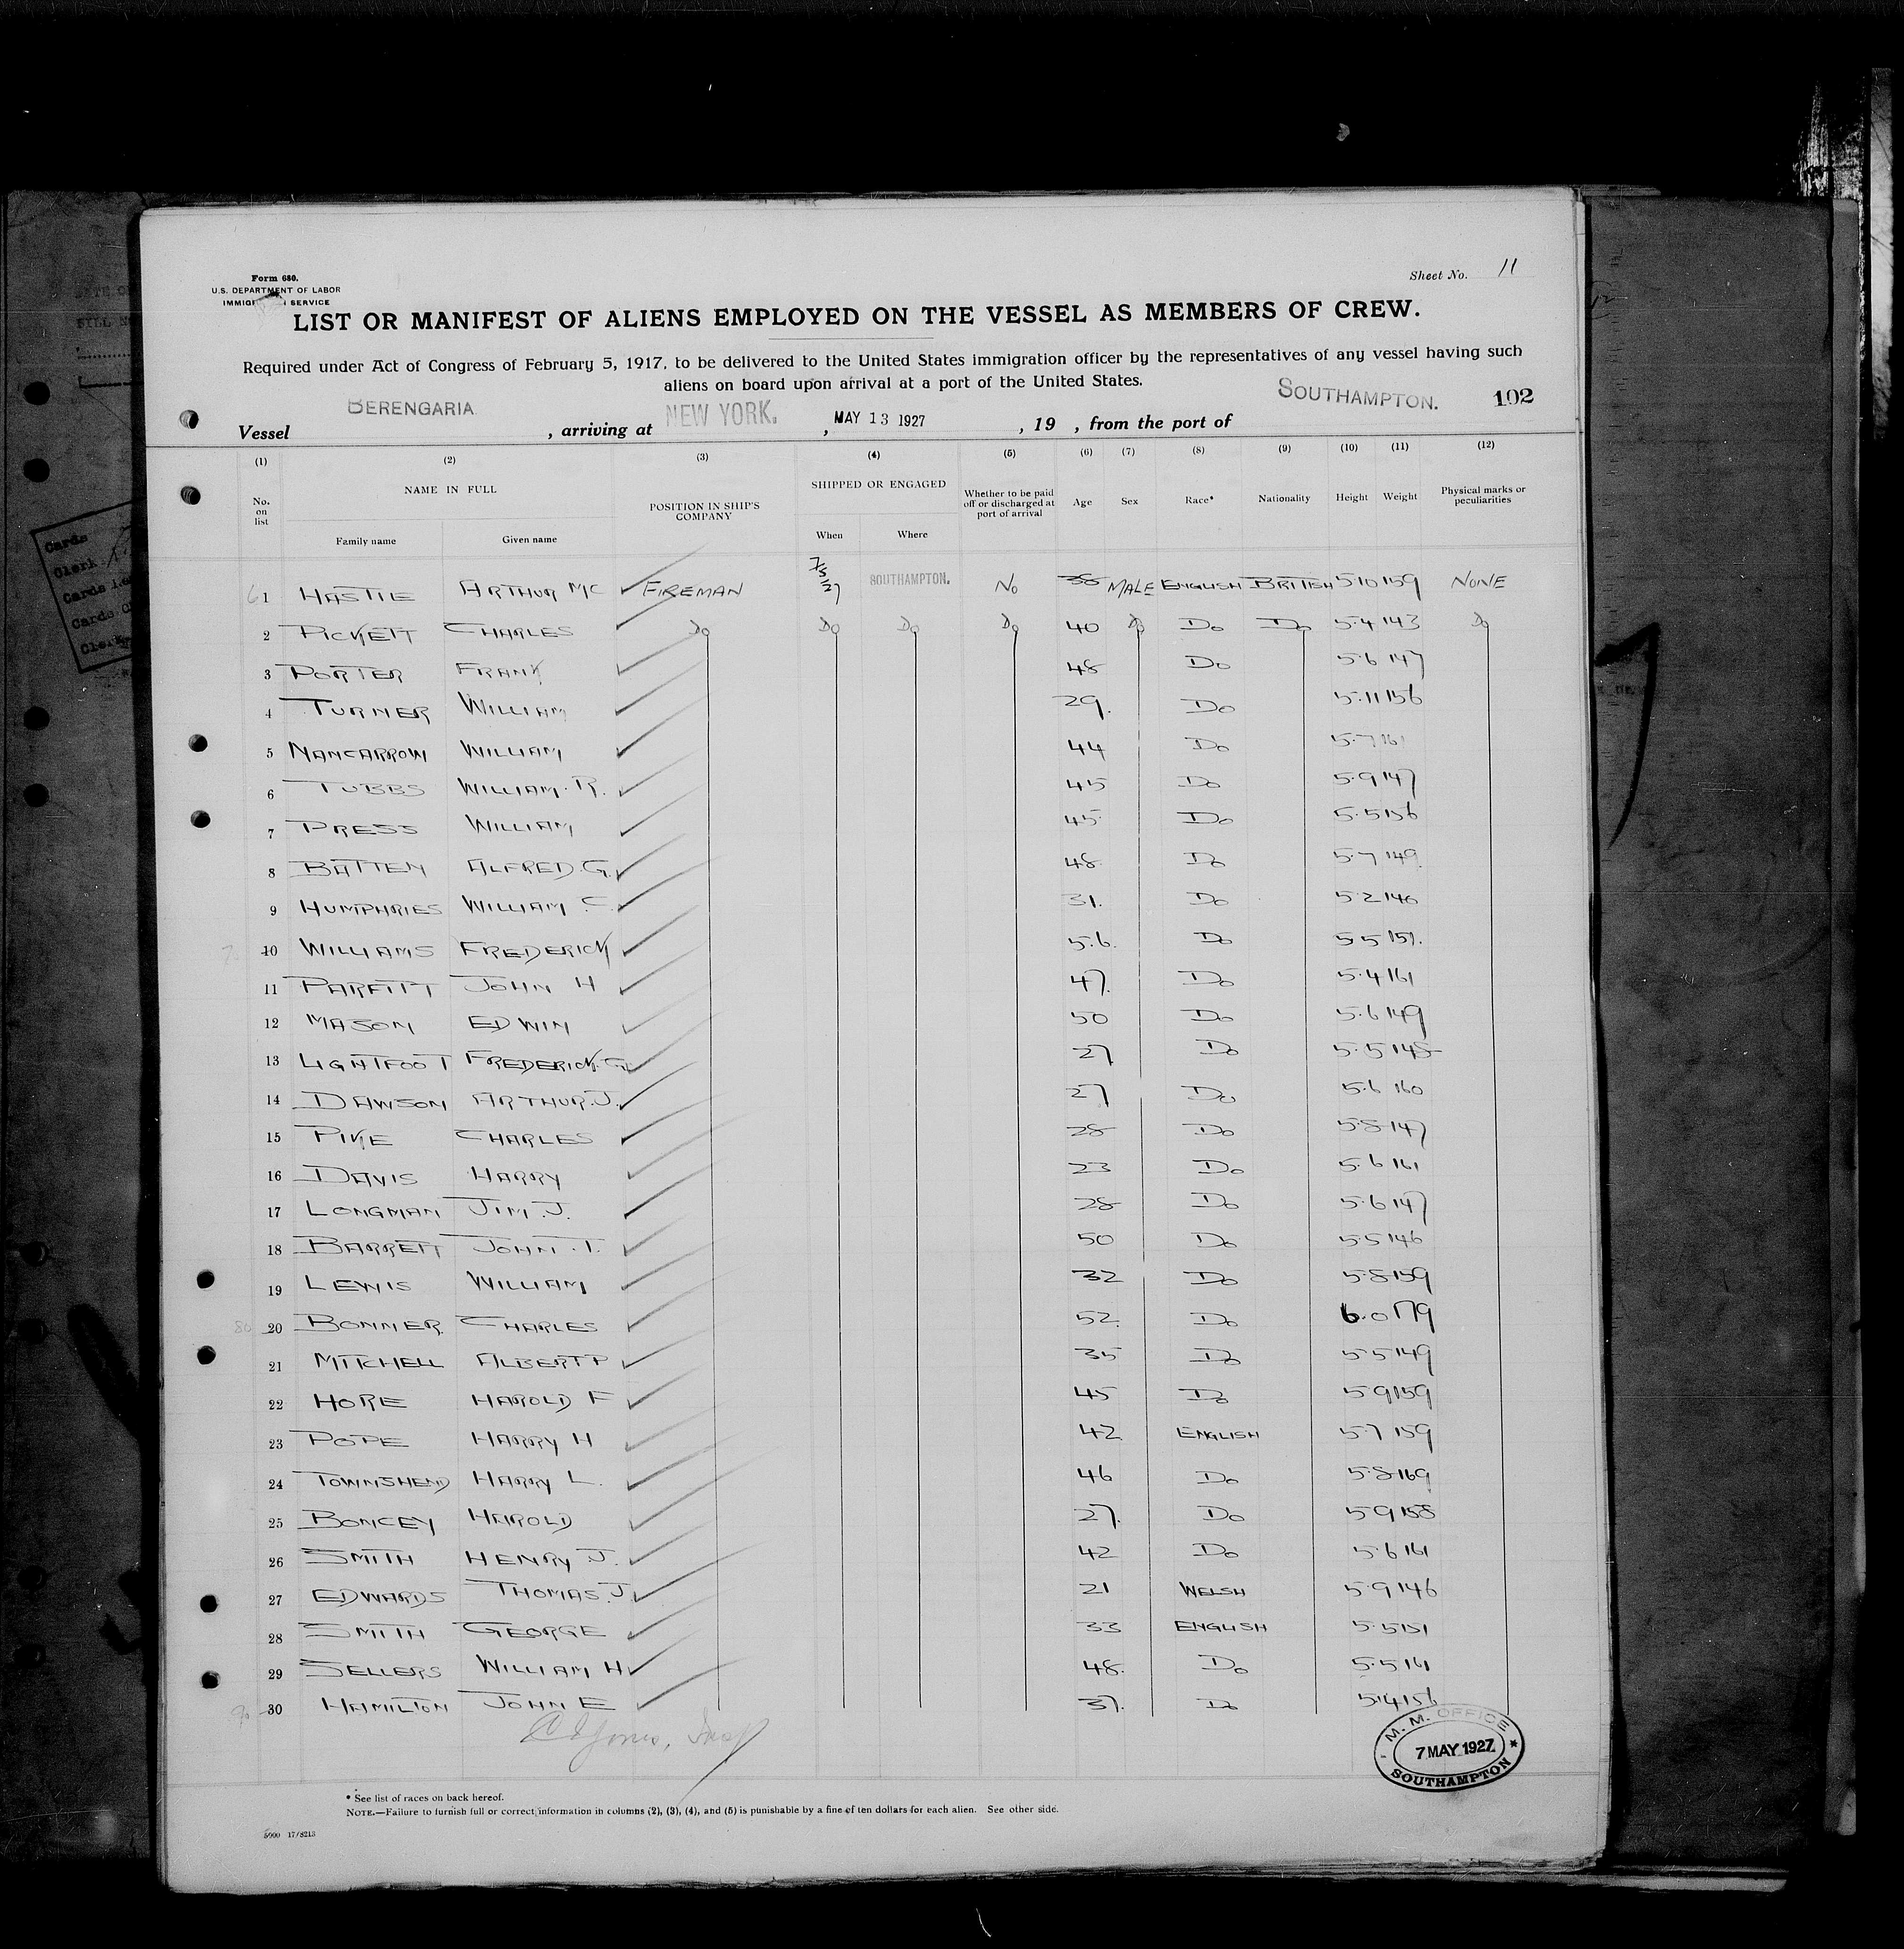 Form 680.
U.S. DEPARTMENT OF LABOR
IMMIGRATION SERVICE
Sheet No. 11
LIST OR MANIFEST OF ALIENS EMPLOYED ON THE VESSEL AS MEMBERS OF CREW.
Required under Act of Congress of February 5, 1917, to be delivered to the United States immigration officer by the representatives of any vessel having such
aliens on board upon arrival at a port of the United States.
Vessel BERENGARIA, arriving at NEW YORK., MAY 13 1927, 19 , from the port of SOUTHAMPTON. 102
(1) (2) (3) (4) (5) (6) (7) (8) (9) (10) (11) (12)
No. on list NAME IN FULL POSITION IN SHIP'S COMPANY SHIPPED OR ENGAGED Whether to be paid off or discharged at port of arrival Age Sex Race* Nationality Height Weight Physical marks or peculiarities
Family name Given name When Where
1 HASTIE ARTHUR MC FIREMAN 7/5/27 SOUTHAMPTON. NO 38 MALE ENGLISH BRITISH 5.10 159 NONE
2 PICKETT CHARLES DO DO DO DO 40 DO DO DO 5.4 143 DO
3 PORTER FRANK 48 DO 5.6 147
4 TURNER WILLIAM 29. DO 5.11 156
5 NANCARROW WILLIAM 44 DO 5.7 161
6 TUBBS WILLIAM.R. 45 DO 5.9 147
7 PRESS WILLIAM 45 DO 5.5 156
8 BATTEN ALFRED.G. 48 DO 5.7 149
9 HUMPHRIES WILLIAM C. 31. DO 5.2 140
10 WILLIAMS FREDERICK 56. DO 5.5 151.
11 PARFITT JOHN H 47. DO 5.4 161
12 MASON EDWIN 50 DO 5.6 149
13 LIGHTFOOT FREDERICK.G. 27 DO 5.5 148
14 DAWSON ARTHUR.J. 27 DO 5.6 160
15 PIKE CHARLES 28 DO 5.8 147
16 DAVIS HARRY 23 DO 5.6 161
17 LONGMAN JIM.J. 28 DO 5.6 147
18 BARRETT JOHN.T. 50 DO 5.5 146
19 LEWIS WILLIAM 32 DO 5.8 159
20 BONNER CHARLES 52 DO 6.0 179
21 MITCHELL ALBERT P 35 DO 5.5 149
22 HORE HAROLD F 45 DO 5.9 159
23 POPE HARRY H 42 ENGLISH 5.7 159
24 TOWNSHEND HARRY L. 46 DO 5.8 169
25 BONCEY HAROLD 27. DO 5.9 158
26 SMITH HENRY J. 42 DO 5.6 161
27 EDWARDS THOMAS.J 21 WELSH 5.9 146
28 SMITH GEORGE 33 ENGLISH 5.5 151
29 SELLERS WILLIAM H 48. DO 5.5 161
30 HAMILTON JOHN E 37. DO 5.4 156
M. M. OFFICE
7 MAY 1927
SOUTHAMPTON
* See list of races on back hereof.
NOTE.—Failure to furnish full or correct information in columns (2), (3), (4), and (5) is punishable by a fine of ten dollars for each alien. See other side.
5000 17/8213